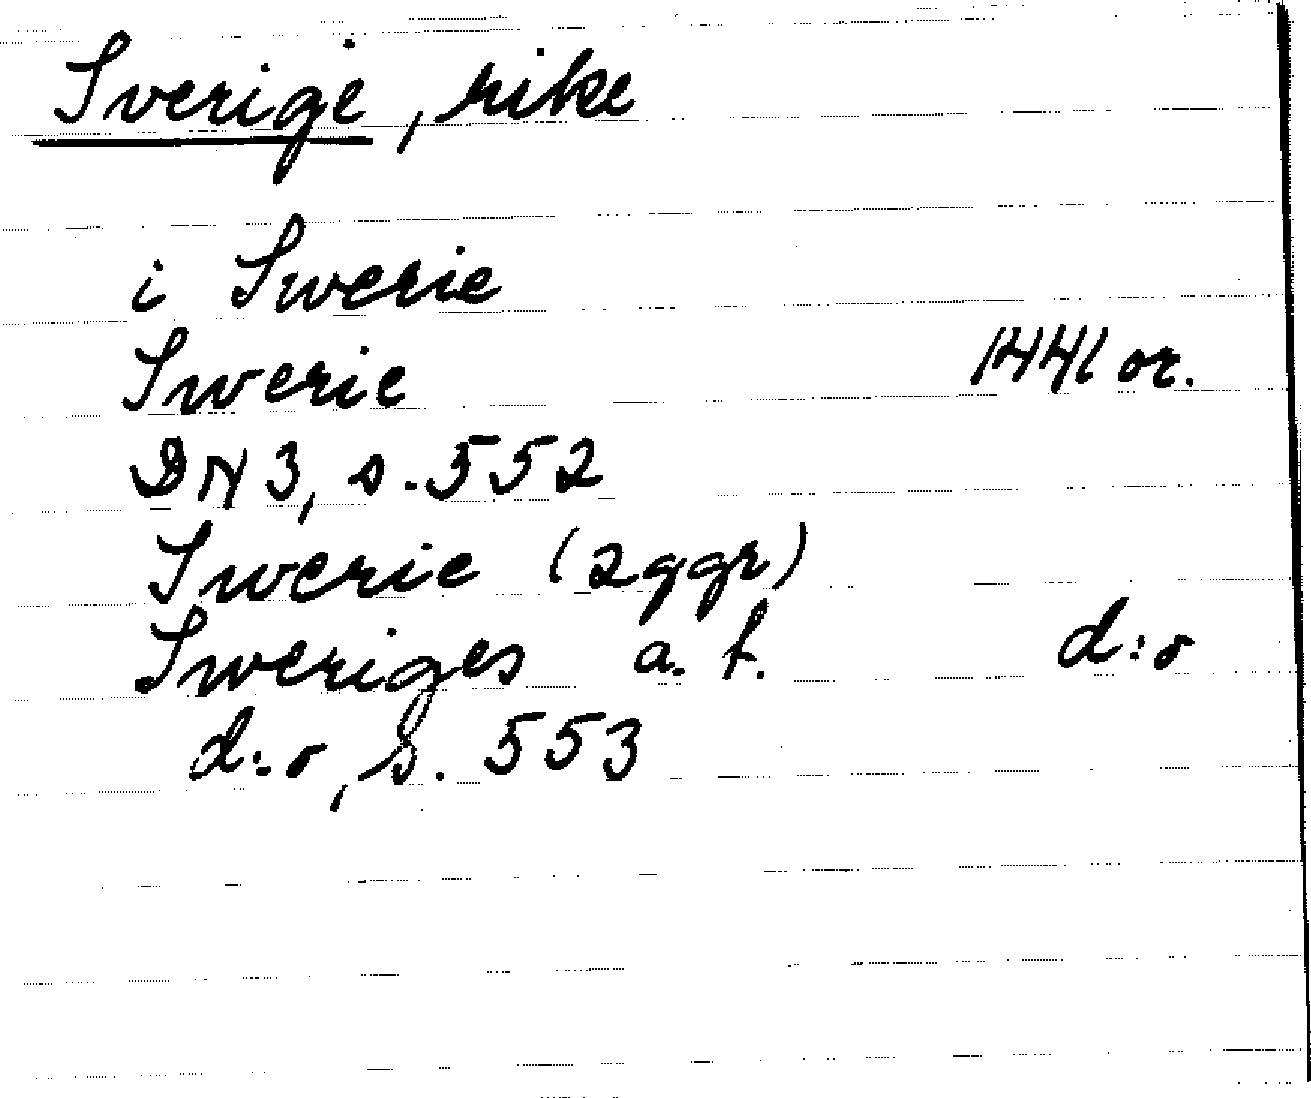 Sverige, rike
i Swerie
Swerie 1441 or.
DN 3, s. 552
Swerie (2 ggr)
Sweriges a. f. d:o
d:o, s. 553